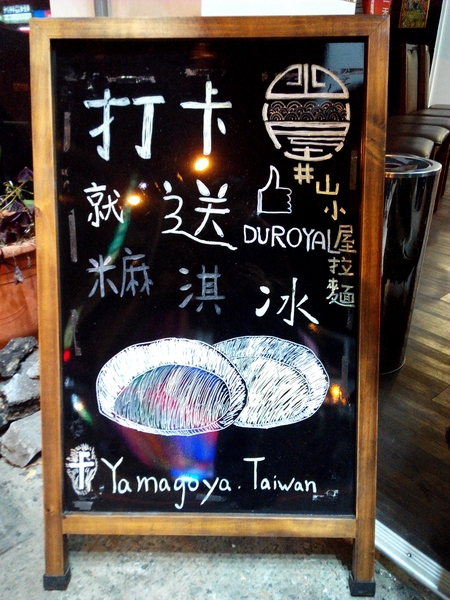 打卡
就送
DUROYAL
米麻淇冰
#山小屋拉麵
Yamagoya. Taiwan